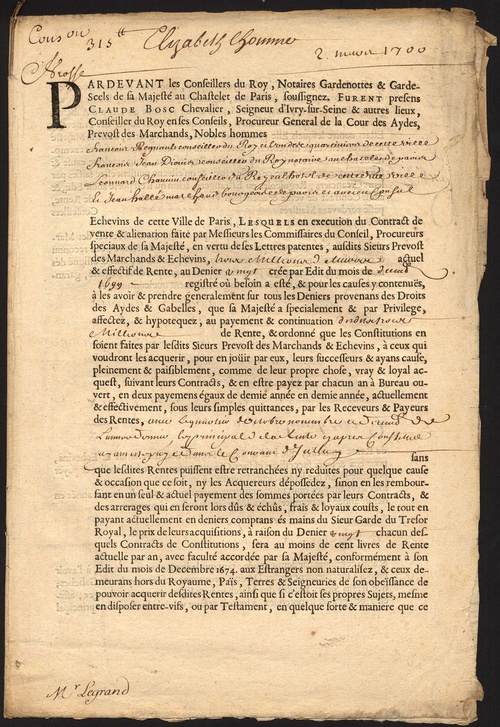 315
Elizabeth
2. 1700
PARDEVANT les Conseillers du Roy, Notaires Gardenottes & Garde-
Scels de sa Majesté au Chastelet de Paris, soussignez. FURENT presens
CLAUDE BOSC Chevalier, Seigneur d'Ivry-sur-Seine & autres lieux,
Conseiller du Roy en ses Conseils, Procureur General de la Cour des Aydes,
Prevost des Marchands, Nobles hommes
francois Regnault conseiller du Roy
francois Jean Dionis conseiller du Roy notaire au chatelet de paris
Leonnard Chauvin conseiller du Roy
Jean hallé marchand bourgeois de paris et ancien Consul
Echevins de cette Ville de Paris, LESQUELS en execution du Contract de
vente & alienation faite par Messieurs les Commissaires du Conseil, Procureurs
speciaux de sa Majesté, en vertu de ses Lettres patentes, ausdits Sieurs Prevost
des Marchands & Echevins, actuel
& effectif de Rente, au Denier vingt creée par Edit du mois de
1699 registré où besoin a esté, & pour les causes y contenuës,
à les avoir & prendre generalement sur tous les Deniers provenans des Droits
des Aydes & Gabelles, que sa Majesté a specialement & par Privilege,
affectez, & hypotequez, au payement & continuation
Millions de Rente, & ordonné que les Constitutions en
soient faites par lesdits Sieurs Prevost des Marchands & Echevins, à ceux qui
voudront les acquerir, pour en joüir par eux, leurs successeurs & ayans cause,
pleinement & paisiblement, comme de leur propre chose, vray & loyal ac-
quest, suivant leurs Contracts, & en estre payez par chacun an à Bureau ou-
vert, en deux payemens égaux de demie année en demie année, actuellement
& effectivement, sous leurs simples quittances, par les Receveurs & Payeurs
des Rentes,
sans
que lesdites Rentes puissent estre retranchées ny reduites pour quelque cause
& occasion que ce soit, ny les Acquereurs dépossedez, sinon en les rembour-
sant en un seul & actuel payement des sommes portées par leurs Contracts, &
des arrerages qui en seront lors dûs & échûs, frais & loyaux cousts, le tout en
payant actuellement en deniers comptans és mains du Sieur Garde du Tresor
Royal, le prix de leurs acquisitions, à raison du Denier vingt chacun des-
quels Contracts de Constitutions, sera au moins de cent livres de Rente
actuelle par an, avec faculté accordée par sa Majesté, conformément à son
Edit du mois de Decembre 1674. aux Estrangers non naturalisez, & ceux de-
meurans hors du Royaume, Païs, Terres & Seigneuries de son obeïssance de
pouvoir acquerir desdites Rentes, ainsi que si c'estoit ses propres Sujets, mesme
en disposer entre-vifs, ou par Testament, en quelque sorte & maniere que ce
Mr Legrand